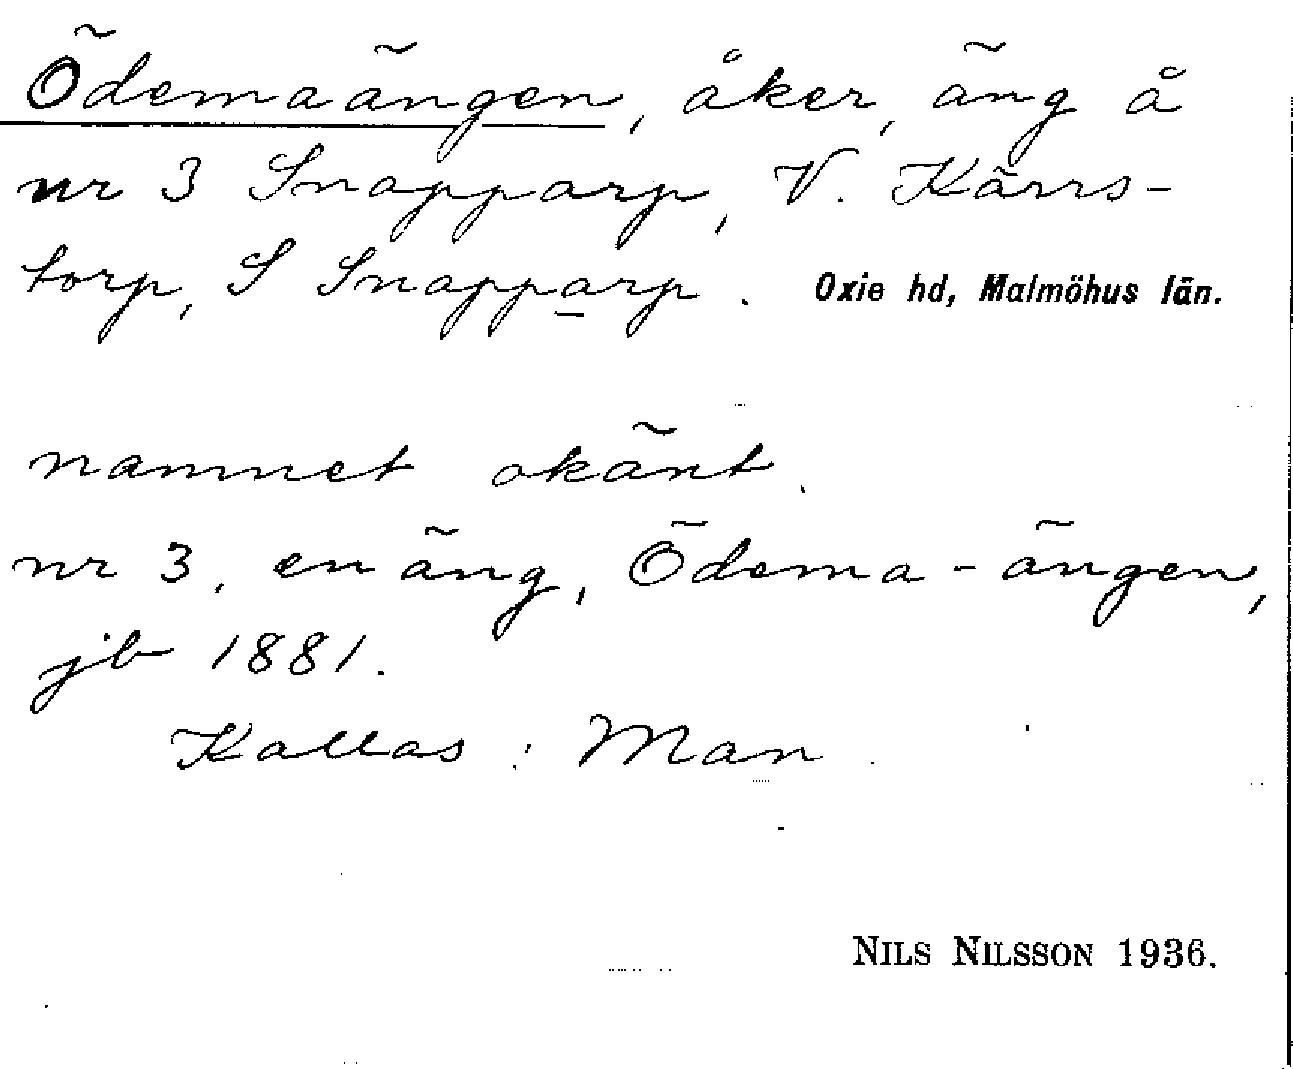 Ödemaängen, åker, äng å
nr 3 Snapparp, V. Kärrs-
torp, S Snapparp. Oxie hd, Malmöhus län.
namnet okänt.
nr 3, en äng, Ödema-ängen,
jb 1881.
Kallas: Man
NILS NILSSON 1936.